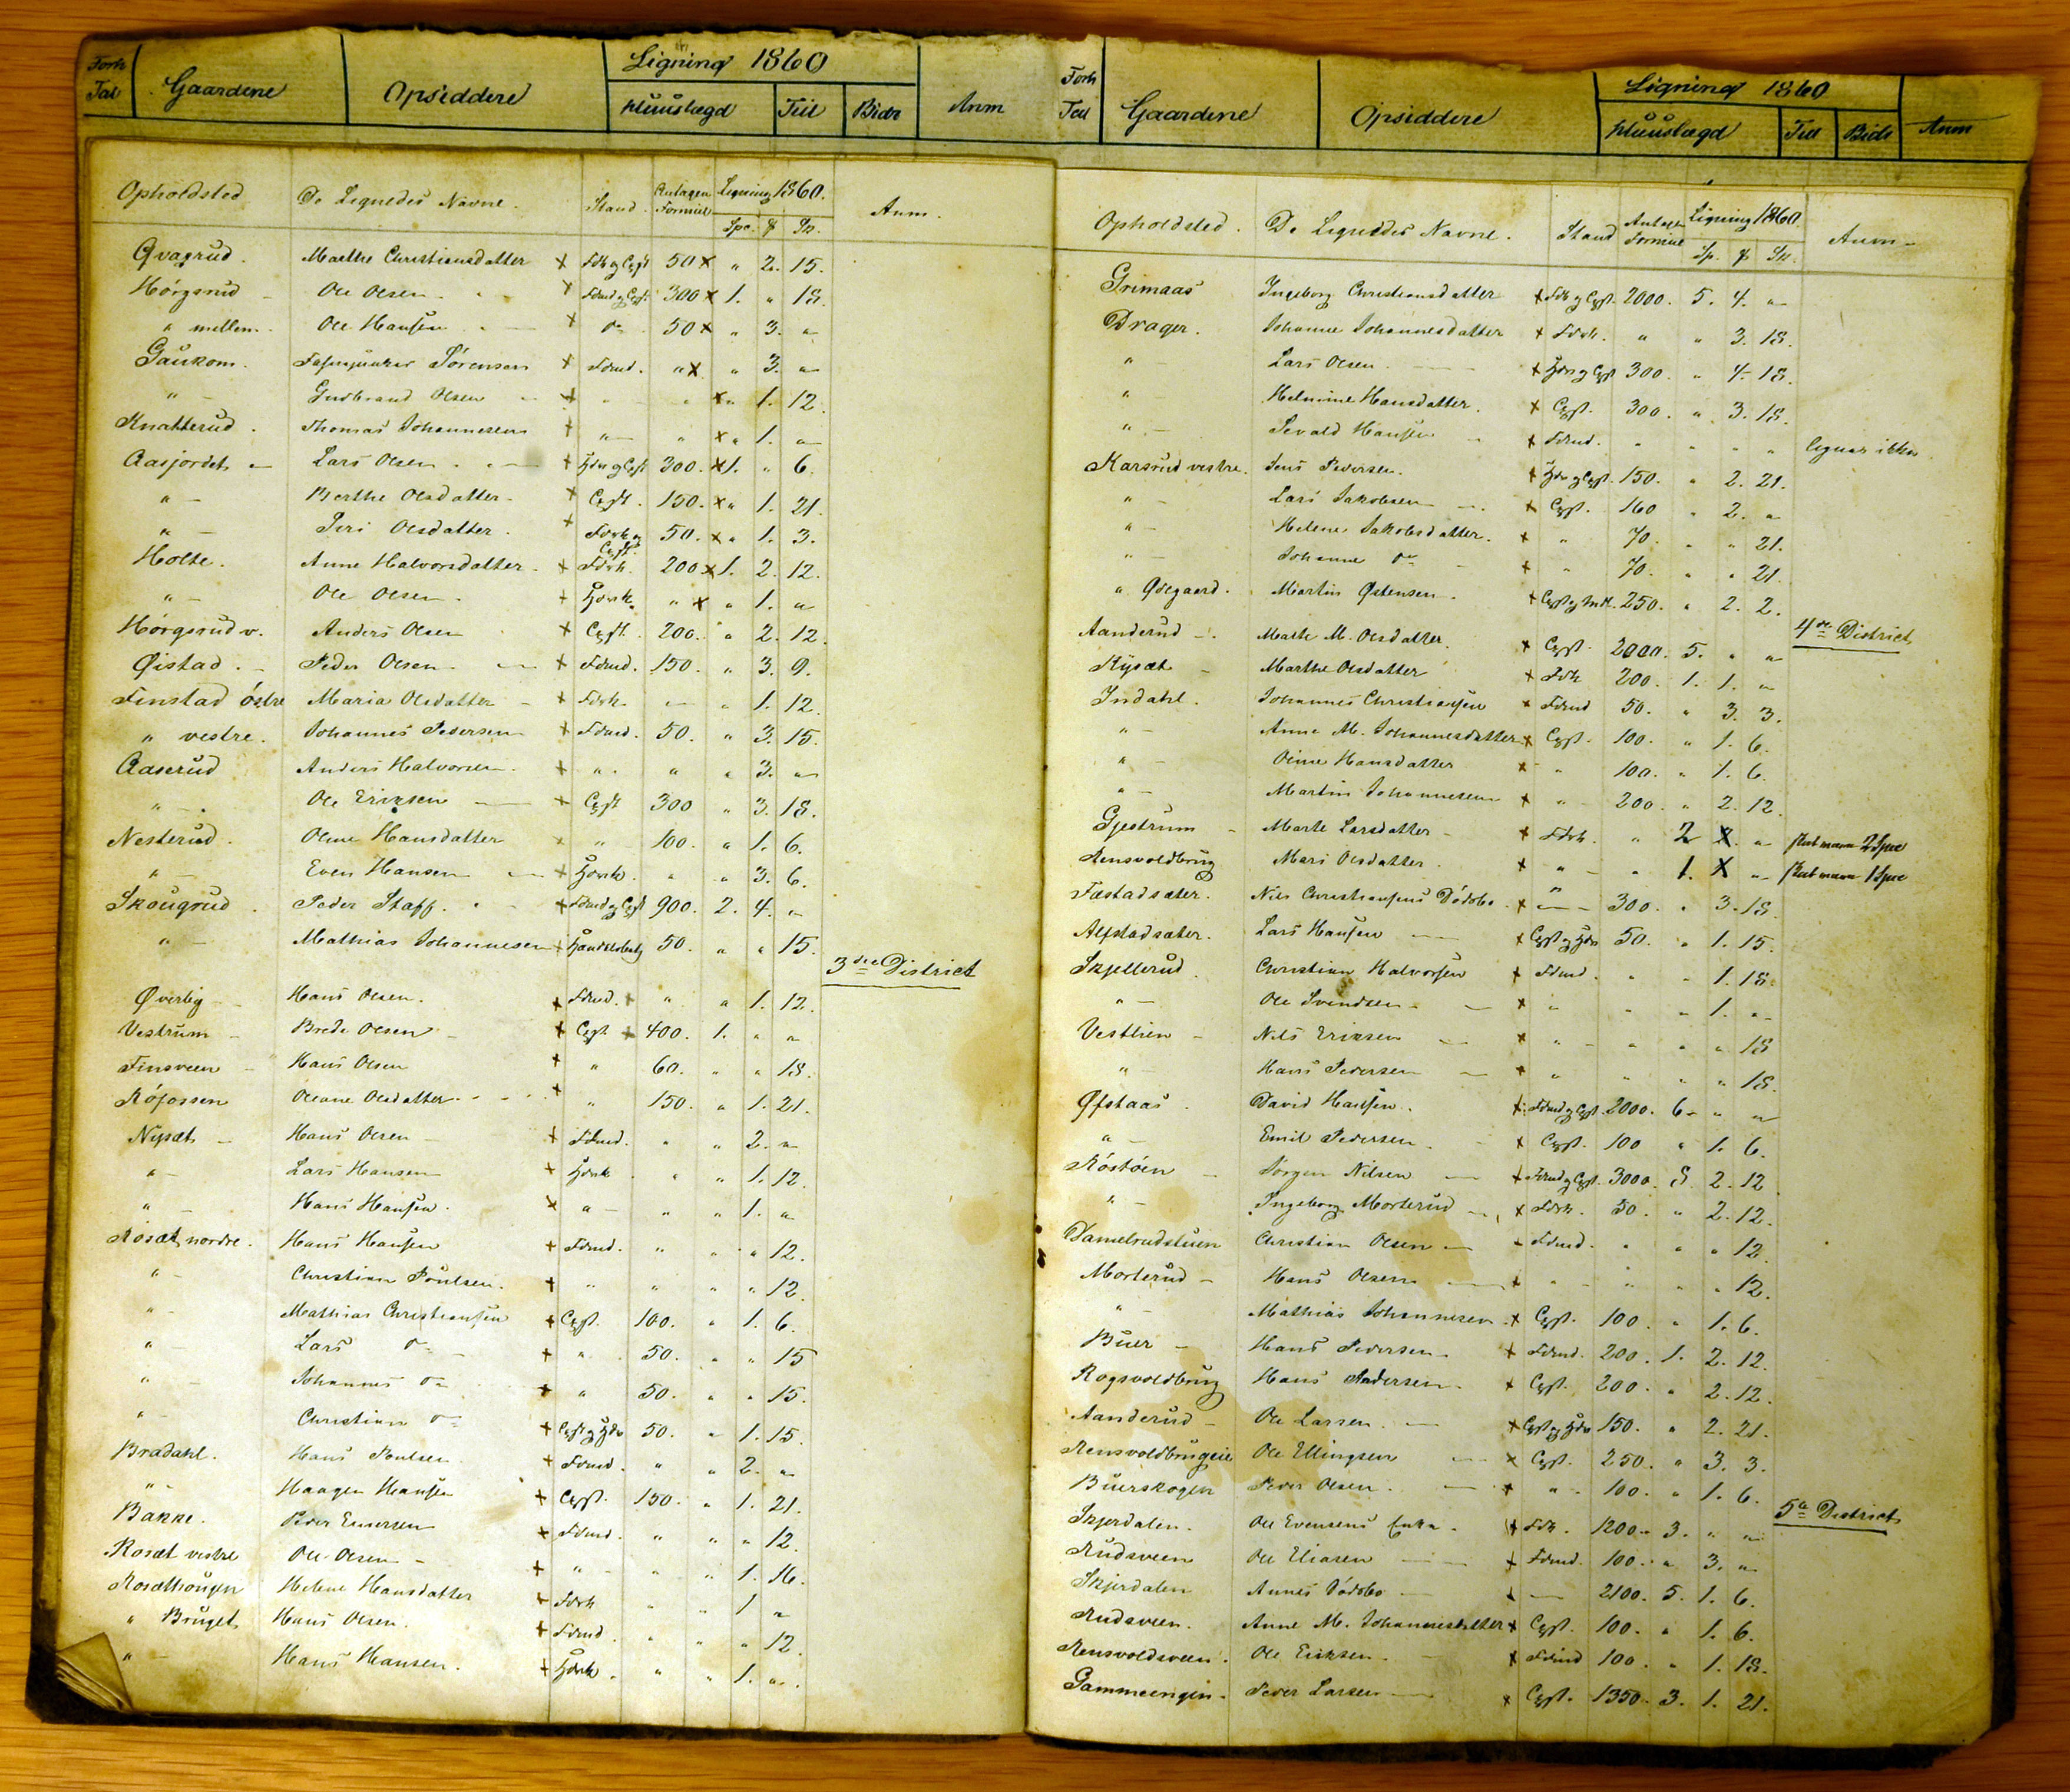 Forh Tal Gaardene Opsiddere Ligning 1860 Anm
Huuslægd Tiil Bidr
Opholdsted De Lignedes Navne. Stand. Antagen Formue Ligning 1860. Anm.
Spe. ₰ Sk.
Qvagrud. Marthe Christiansdatter x Fdk og Cgst 50 x " 2. 15.
Hörgsrud - Ole Olsen x Fdmd og Cgst. 300 x 1. " 18.
" mellem. Ole Hansen x do 50 x " 3. "
Gaukom. Sörensen x Fdmd. " x " 3. "
" - Gudbrand Olsen x " " x " 1. 12.
Knatterud. Thomas Johannesen x " " x " 1. "
Aasjordet Lars Olsen x Hdm og Cgst 300. x 1. " 6.
" - Berthe Olsdatter x Cgst. 150. x " 1. 21.
" - Siri Olsdatter. x Fdrk og Cgst. 50. x " 1. 3.
Holte. Anne Halvorsdatter x Fdrk. 200 x 1. 2. 12.
" - Ole Olsen. x Hdmk. " x " 1. "
Hörgsrud v. Anders Olsen x Cgst. 200. " 2. 12.
Øistad. Peder Olsen x Fdmd. 150. " 3. 9.
Finstad östre Maria Olsdatter x Fdrk " " 1. 12.
" vestre. Johannes Pedersen x Fdmd. 50. " 3. 15.
Aaserud Anders Halvorsen x " " " 3. "
" - Ole Eriksen x Cgst 300 " 3. 18.
Nesterud. Oline Hansdatter x " 100. " 1. 6.
" - Even Hansen x Hdmk. " " 3. 6.
Skougrud. Peder Staff. x Fdmd og Cgst 900. 2. 4. "
" - Mathias Johannesen x 50. " " 15.
3die District
Øverby Hans Olsen. x Fdmd. x " " 1. 12.
Vestrum - Brede Olsen x Cgst x 400. 1. " "
Finsveen Hans Olsen x " 60. " " 18.
Röfossen Oleane Olsdatter x " 150. " 1. 21.
Nysæt - Hans Olsen x Fdmd. " " 2. "
" - Lars Hansen x Hdmk " " 1. 12.
" - Hans Hansen. x " " " 1. "
Rösæt nordre. Hans Hansen x Fdmd. " " " 12.
" - Christian Poulsen. x " " " " 12.
" - Mathias Christiansen x Cgst. 100. " 1. 6.
" - Lars do x " 50. " " 15
" - Johannes do x " 50. " " 15.
" - Christian do x Cgst og Hdm 50. " 1. 15.
Bradahl. Hans Poulsen x Fdmd. " " 2. "
" - Haagen Hansen x Cgst. 150. " 1. 21.
Bakke. Peder Einersen x Fdmd. " " " 12.
Rosæt vestre Ole Olsen x " " " 1. 16.
Rosæthougen Helene Hansdatter x Fdrk " " 1 "
" Bruget Hans Olsen. x Fdmd. " " " 12.
" - Hans Hansen. x Hdmk. " " 1. "
Forh Tal Gaardene Opsiddere Ligning 1860 Anm
Huuslægd Tiil Bidr
Opholdsted. De Lignedes Navne. Stand Antagen Formue Ligning 1860. Anm
Sp. ₰ Sk.
Grimaas Ingeborg Christiansdatter x Fdk og Cgst. 2000. 5. 4. "
Drager. Johanne Johannesdatter x Fdrk. " " 3. 18.
" Lars Olsen x Hdm og Cgst 300. " 4. 18.
" Helmine Hansdatter. x Cgst. 300. " 3. 18.
" - Sevald Hansen x Fdmd. " " " " lignes ikke
Karsrud vestre. Jens Pedersen. x Hdm og Cgst. 150. " 2. 21.
" - Lars Jakobsen x Cgst. 160 " 2. "
" - Helene Jakobsdatter. x " 70. " " 21.
" - Johanne do x " 70. " " 21
" Ødegaard. Martin Østensen. x Cgst og 250. " 2. 2.
4de District
Aanderud Marte M. Olsdatter. x Cgst. 2000. 5. " "
Rysæt Marthe Olsdatter x Fdk 200. 1. 1. "
Indahl. Johannes Christiansen x Fdmd 50. " 3. 3.
" - Anne M. Johannesdatter x Cgst. 100. " 1. 6.
" - Oline Hansdatter x " 100. " 1. 6.
" - Martin Johannesen x " 200. " 2. 12.
Gjestrum - Marte Larsdatter x Fdrk. " 2 " 2 Spe
Rensvoldbrug Mari Olsdatter. x " " 1. " 1 Spe
Fæstadsæter. Nils Christiansens Dödsbo x " 300. " 3. 18.
Alfstadsæter. Lars Hansen x Cgst og Hdm 50. " 1. 15.
Skjellerud. Christian Halvorsen x Fdmd. " " 1. 18.
" - Ole Svendsen x " " " 1. "
Vestlien - Nils Eriksen x " " " " 18
" - Hans Pedersen x " " " " 18.
Øfstaas. David Hansen. x Fdmd og Cgst. 2000. 6 " "
" - Emil Pedersen. x Cgst. 100 " 1. 6.
Röstöen Jörgen Nilsen x Fdmd og Cgst. 3000. 8 2. 12
" - Ingeborg Morterud x Fdrk. 50. " 2. 12.
Damelrudstuen Christian Olsen x Fdmd. " " " 12
Morterud - Hans Olsen x " " " " 12.
" - Mathias Johannesen x Cgst. 100. " 1. 6.
Buer - Hans Pedersen. x Fdmd. 200. 1. 2. 12.
Rogsvoldbrug Hans Pedersen. x Cgst. 200. " 2. 12.
Aanderud - Ole Larsen. x Cgst og Hdm 150. " 2. 21.
Rensvoldbrugeie Ole Ellingsen x Cgst. 250. " 3. 3.
Buerskogen Peder Olsen. x " 100. " 1. 6.
5te District
Skjerdalen. Ole Evensens Enke. x Fdk. 1200. 3. " "
Rudsveen Ole Eliasen x Fdmd. 100. " 3. "
Skjerdalen Annes Dödsbo x - 2100. 5. 1. 6.
Rudsveen. Anne M. Johannesdatter x Cgst. 100. " 1. 6.
Rensvoldsveen. Ole Eriksen. x Fdmd 100. " 1. 18.
Gammeengen. Peder Larsen x Cgst. 1350. 3. 1. 21.